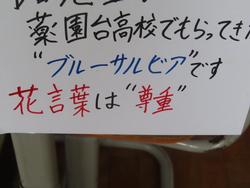 薬園台高校でもらってきた
"ブルーサルビア"です
花言葉は"尊重"